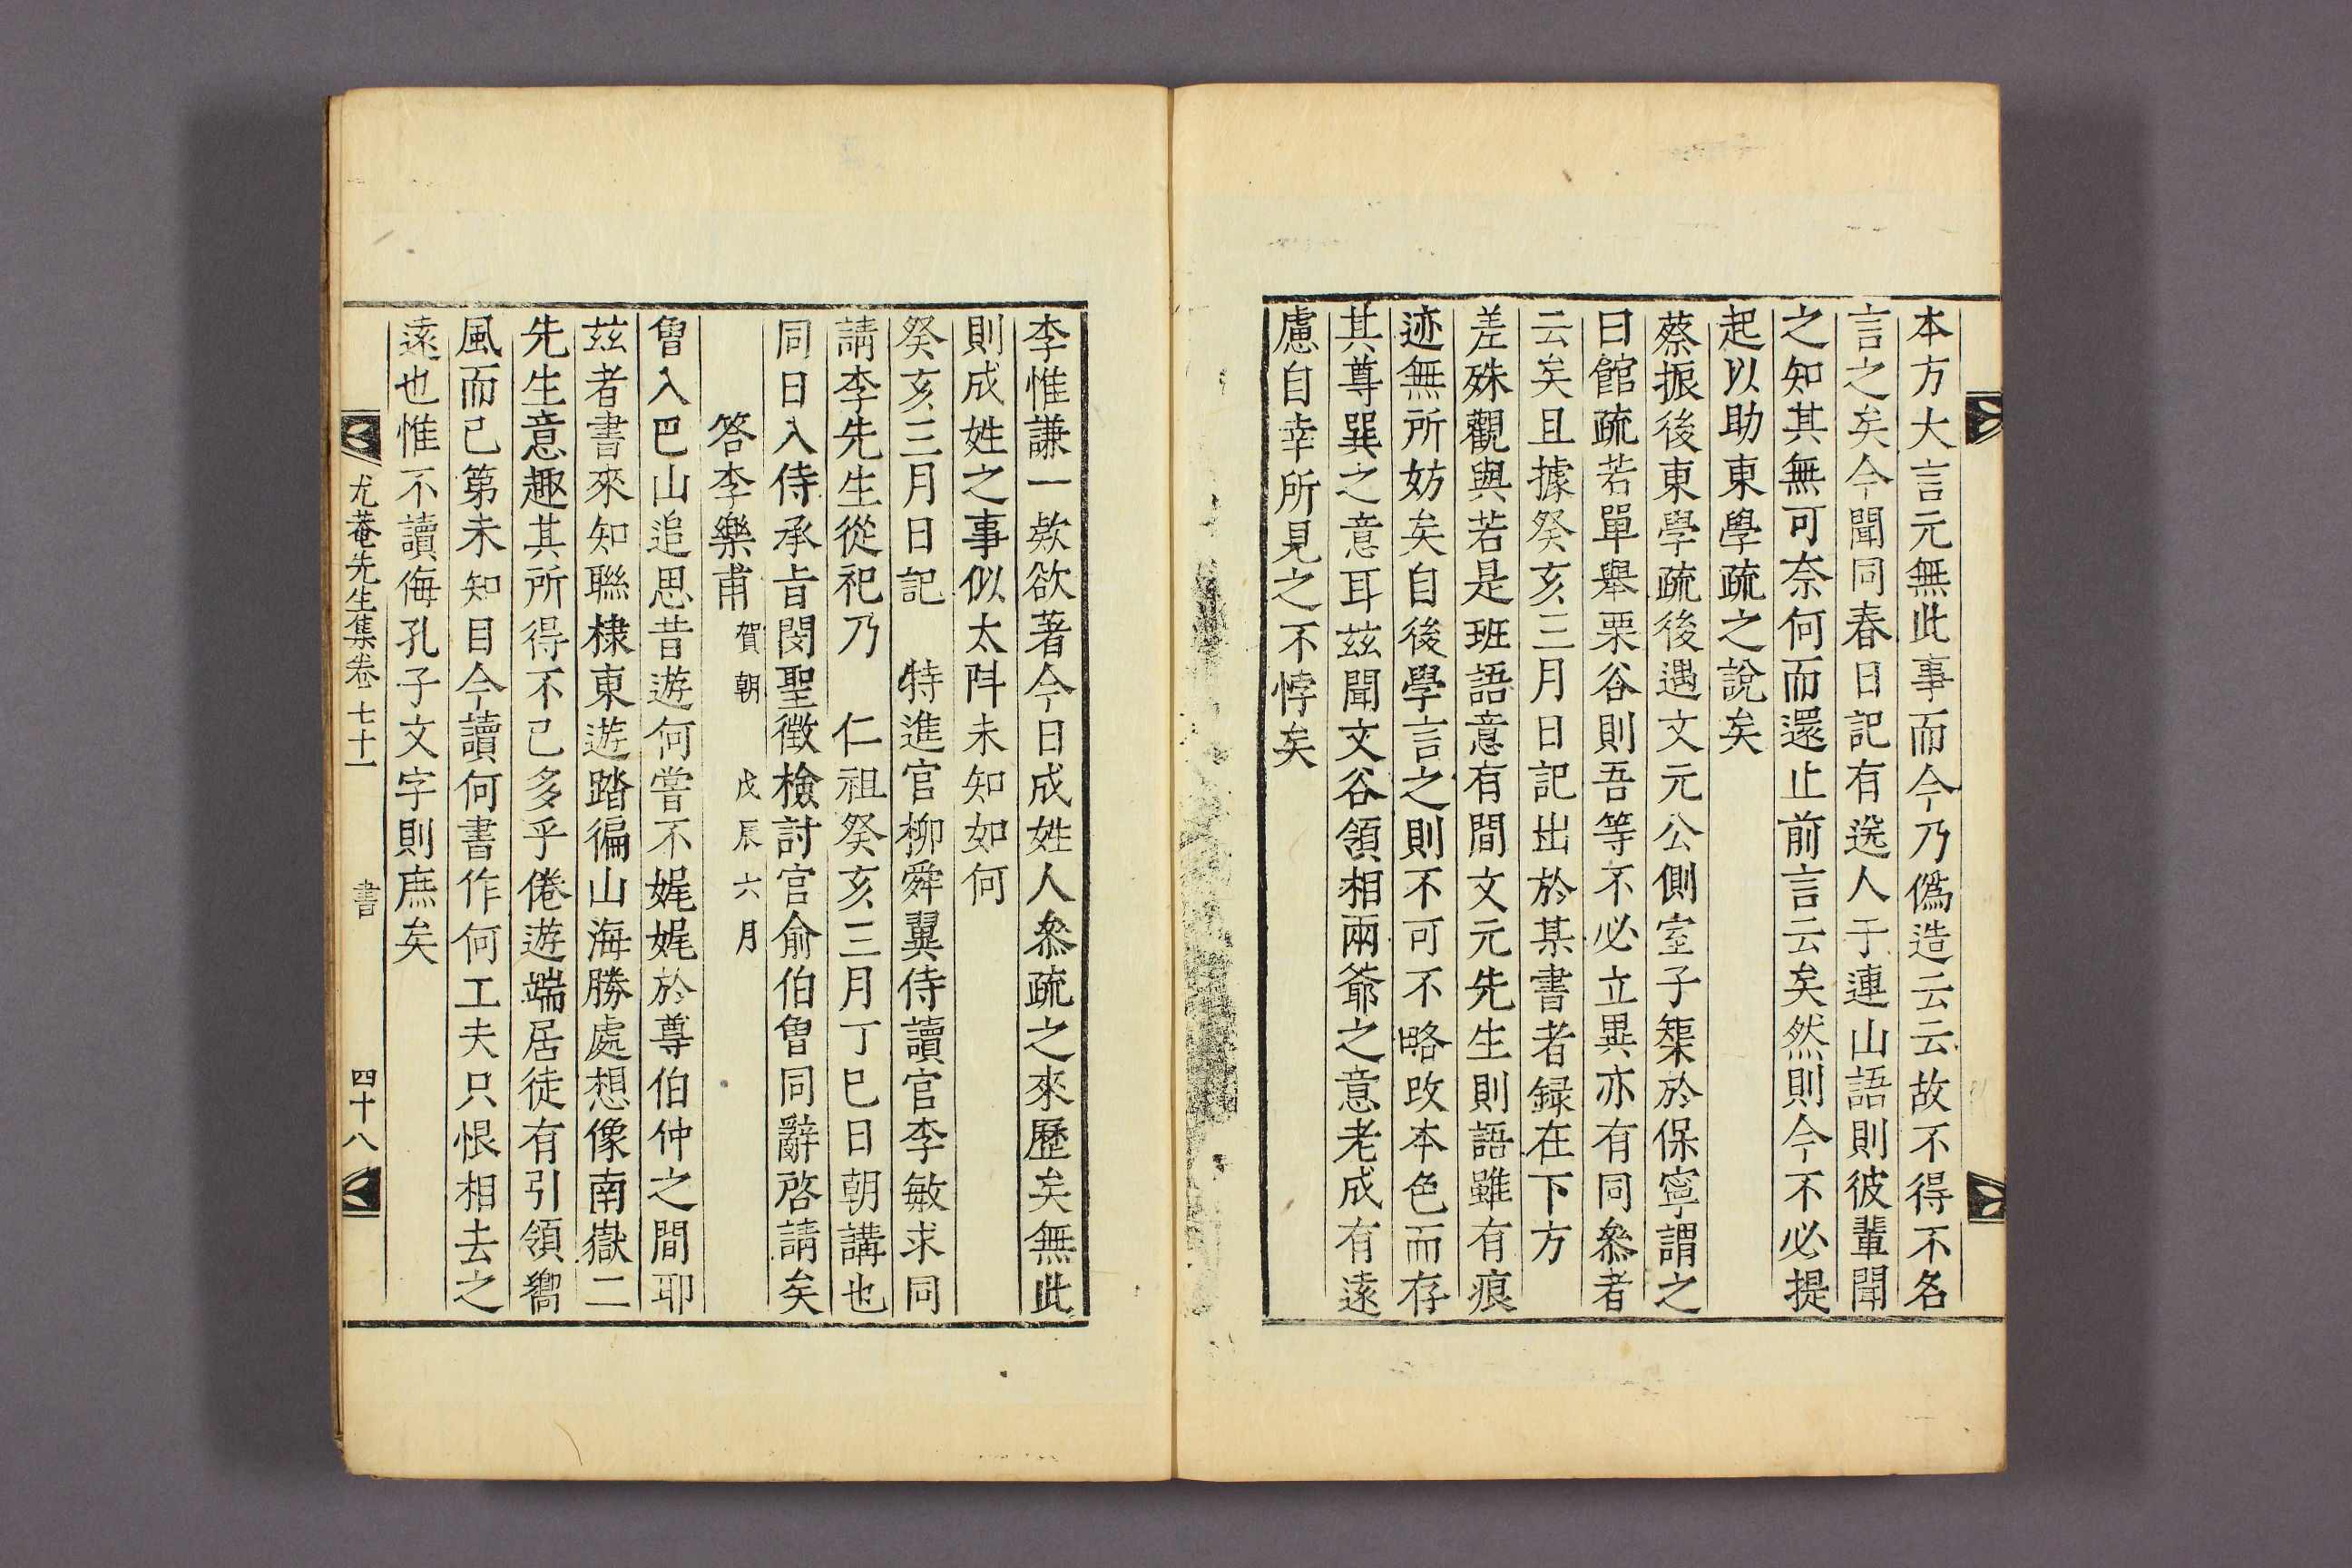 本方大言元無此事而今乃僞造云云故不得不各
言之矣今聞同春日記有選人于連山語則彼輩聞
之知其無可奈何而還止前言云矣然則今不必提
起以助東學疏之說矣
蔡振後東學疏後遇文元公側室子榘於保寧謂之
曰館疏若單舉栗谷則吾等不必立異亦有同叅者
云矣且據癸亥三月日記出於某書者録在下方
差殊觀與若是班語意有間文元先生則語雖有痕
迹無所妨矣自後學言之則不可不略改本色而存
其尊巽之意耳玆聞文谷領相兩爺之意老成有遠
慮自幸所見之不悖矣
李惟謙一欵欲著今日成姓人叅疏之來歷矣無此
則成姓之事似太阧未知如何
癸亥三月日記 特進官柳舜翼侍讀官李敏求同
請李先生從祀乃 仁祖癸亥三月丁巳日朝講也
同日入侍承㫖閔聖徵檢討官俞伯曾同辭啓請矣
答李樂甫賀朝 戊辰六月
曾入巴山追思昔遊何嘗不娓娓於尊伯仲之間耶
玆者書來知聯棣東遊踏徧山海勝處想像南嶽二
先生意趣其所得不已多乎倦遊端居徒有引領嚮
風而已第未知目今讀何書作何工夫只恨相去之
遠也惟不讀侮孔子文字則庶矣
尤菴先生集卷七十一 書 四十八